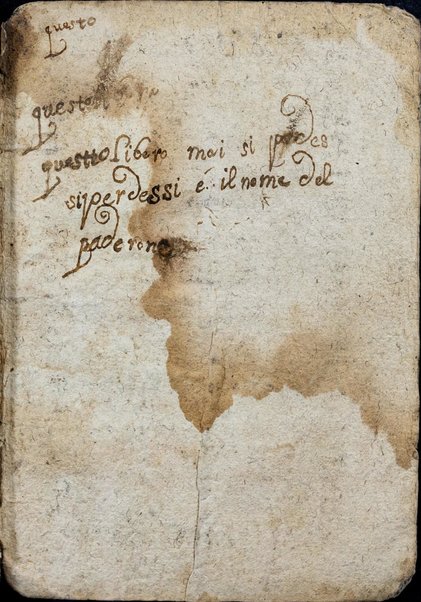 questo
questo
questto libero mai si pedes
siperdessi e il nome del
paderone